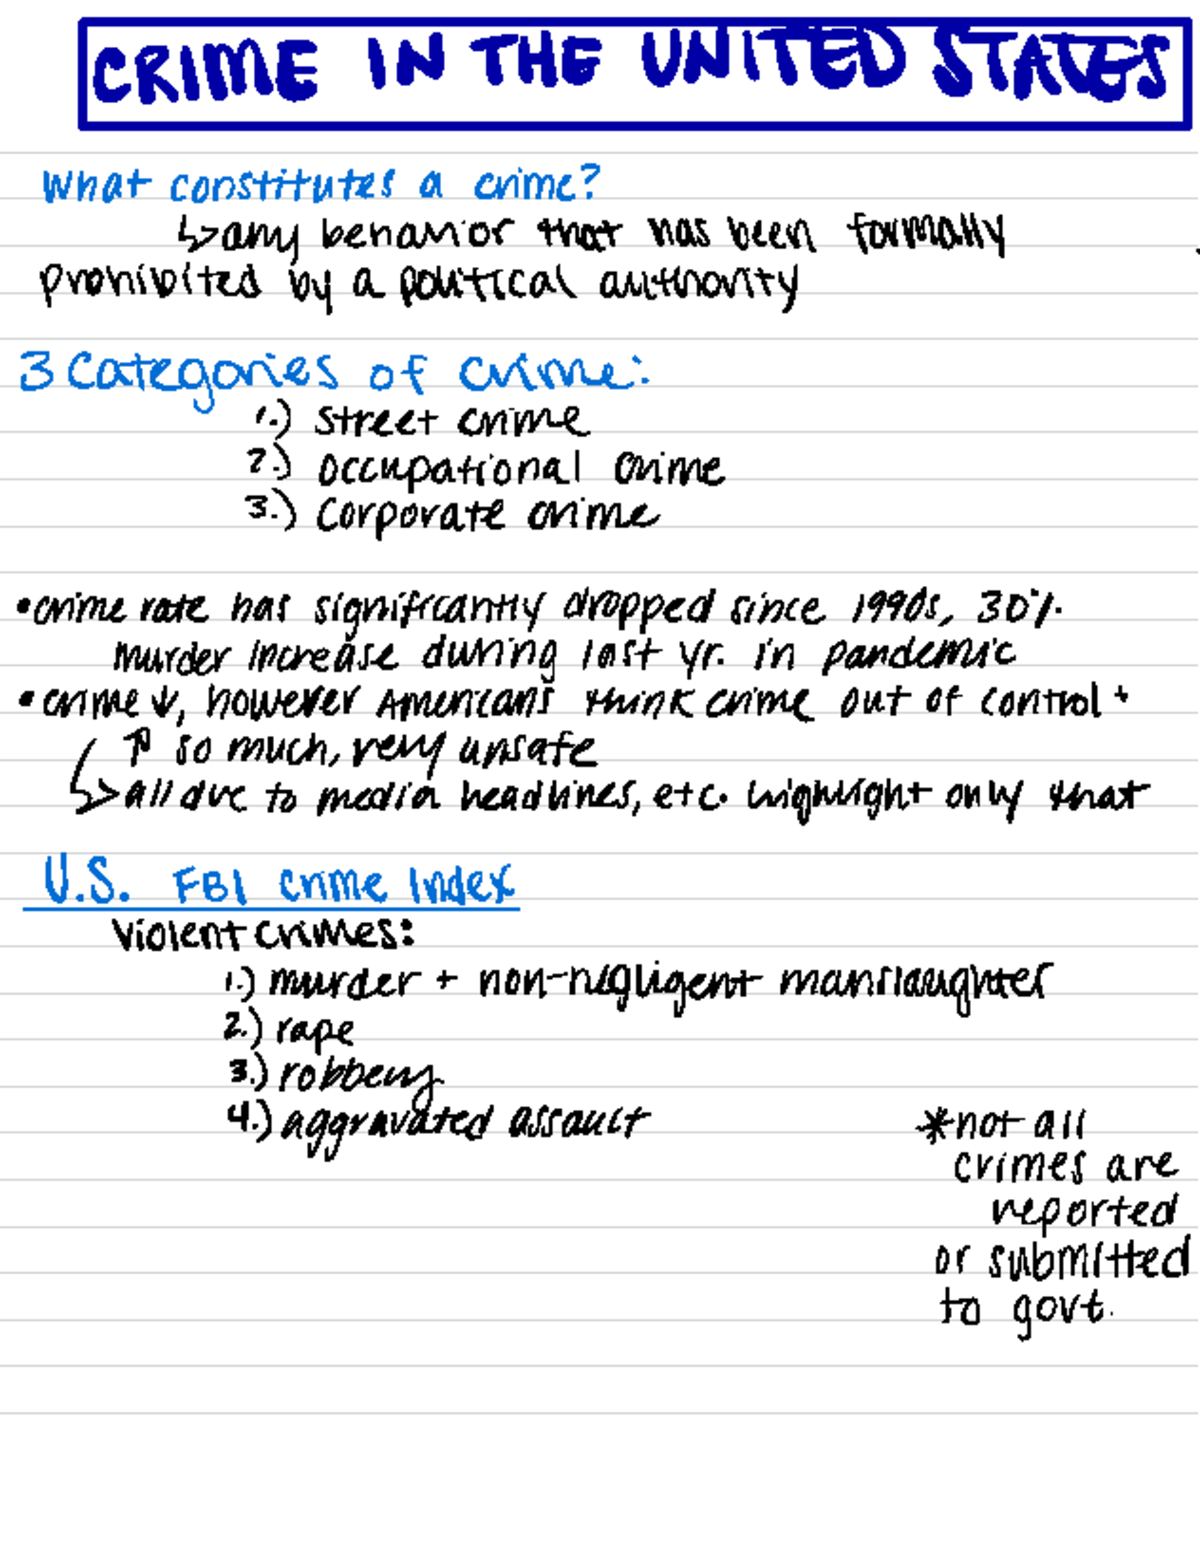 CRIME IN THE UNITED STATES
What constitutes a crime?
↳any behavior that has been formally
prohibited by a political authority
3 Categories of crime:
1.) street crime
2.) occupational crime
3.) corporate crime
•crime rate has significantly dropped since 1990s, 30%
murder increase during last yr. in pandemic
•crime ↓, however Americans think crime out of control +
↑ so much, very unsafe
↳all due to media headlines, etc. highlight only that
U.S. FBI Crime Index
Violent crimes:
1.) murder + non-negligent manslaughter
2.) rape
3.) robbery
4.) aggravated assault
*not all
crimes are
reported
or submitted
to govt.